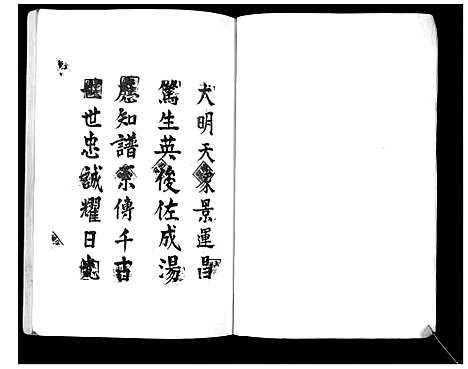 大明天家景運昌
篤生英後佐成湯
應知譜系傳千古
世世忠誠耀日